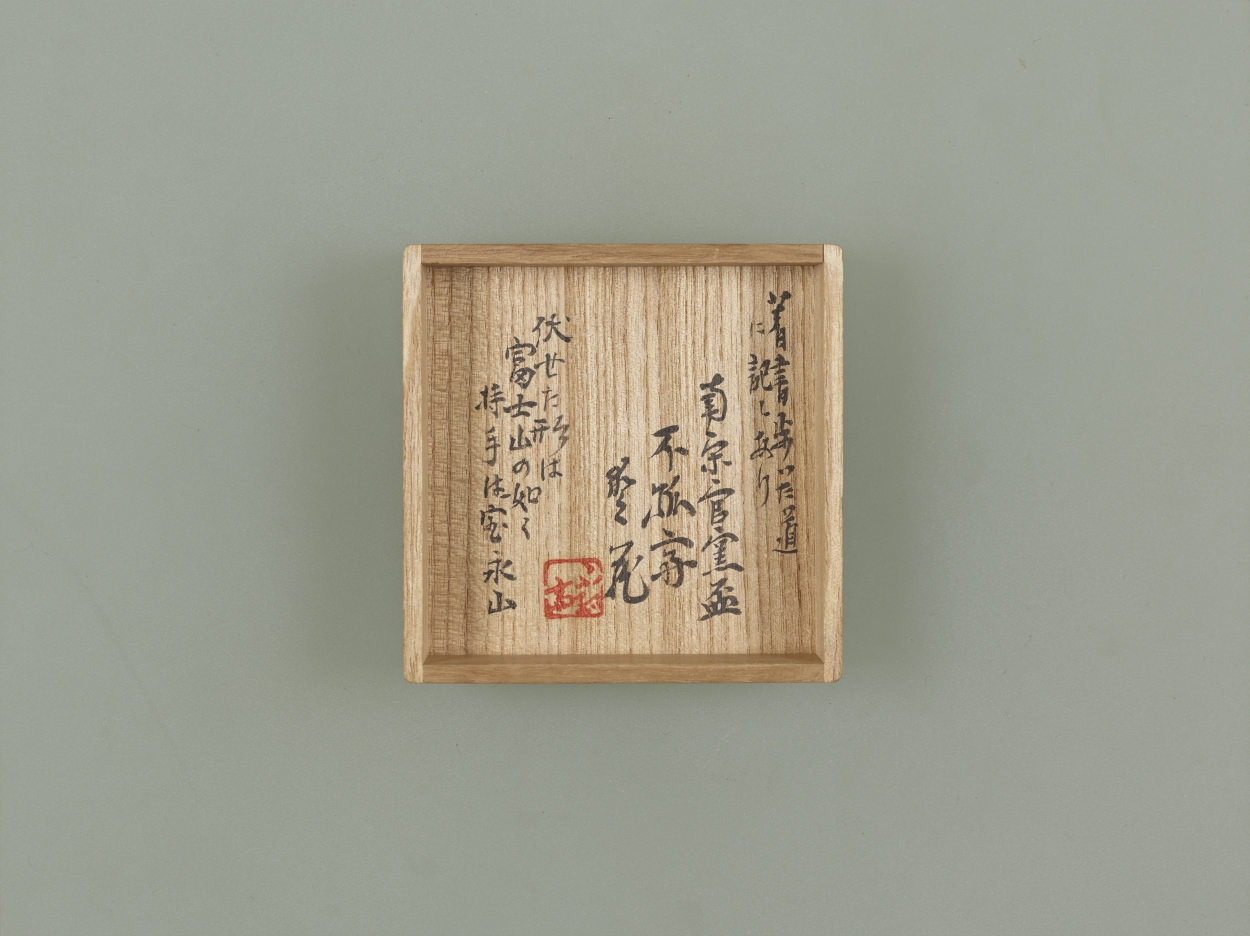 著書歩いた道
に記しあり
南宋官窯盃
不孤斎
愛蔵
伏せた形は
富士山の如く
持手は宝永山